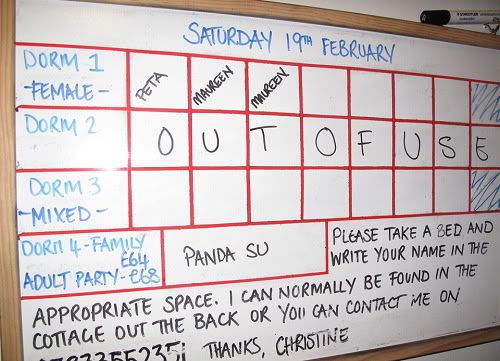 SATURDAY 19TH FEBRUARY
DORM 1
-FEMALE-
PETA
MAUREEN
MAUREEN
DORM 2
OUT OF USE
DORM 3
-MIXED-
DORM 4-FAMILY
£64
ADULT PARTY-£68
PANDA SU
PLEASE TAKE A BED AND
WRITE YOUR NAME IN THE
APPROPRIATE SPACE. I CAN NORMALLY BE FOUND IN THE
COTTAGE OUT THE BACK OR YOU CAN CONTACT ME ON
THANKS, CHRISTINE